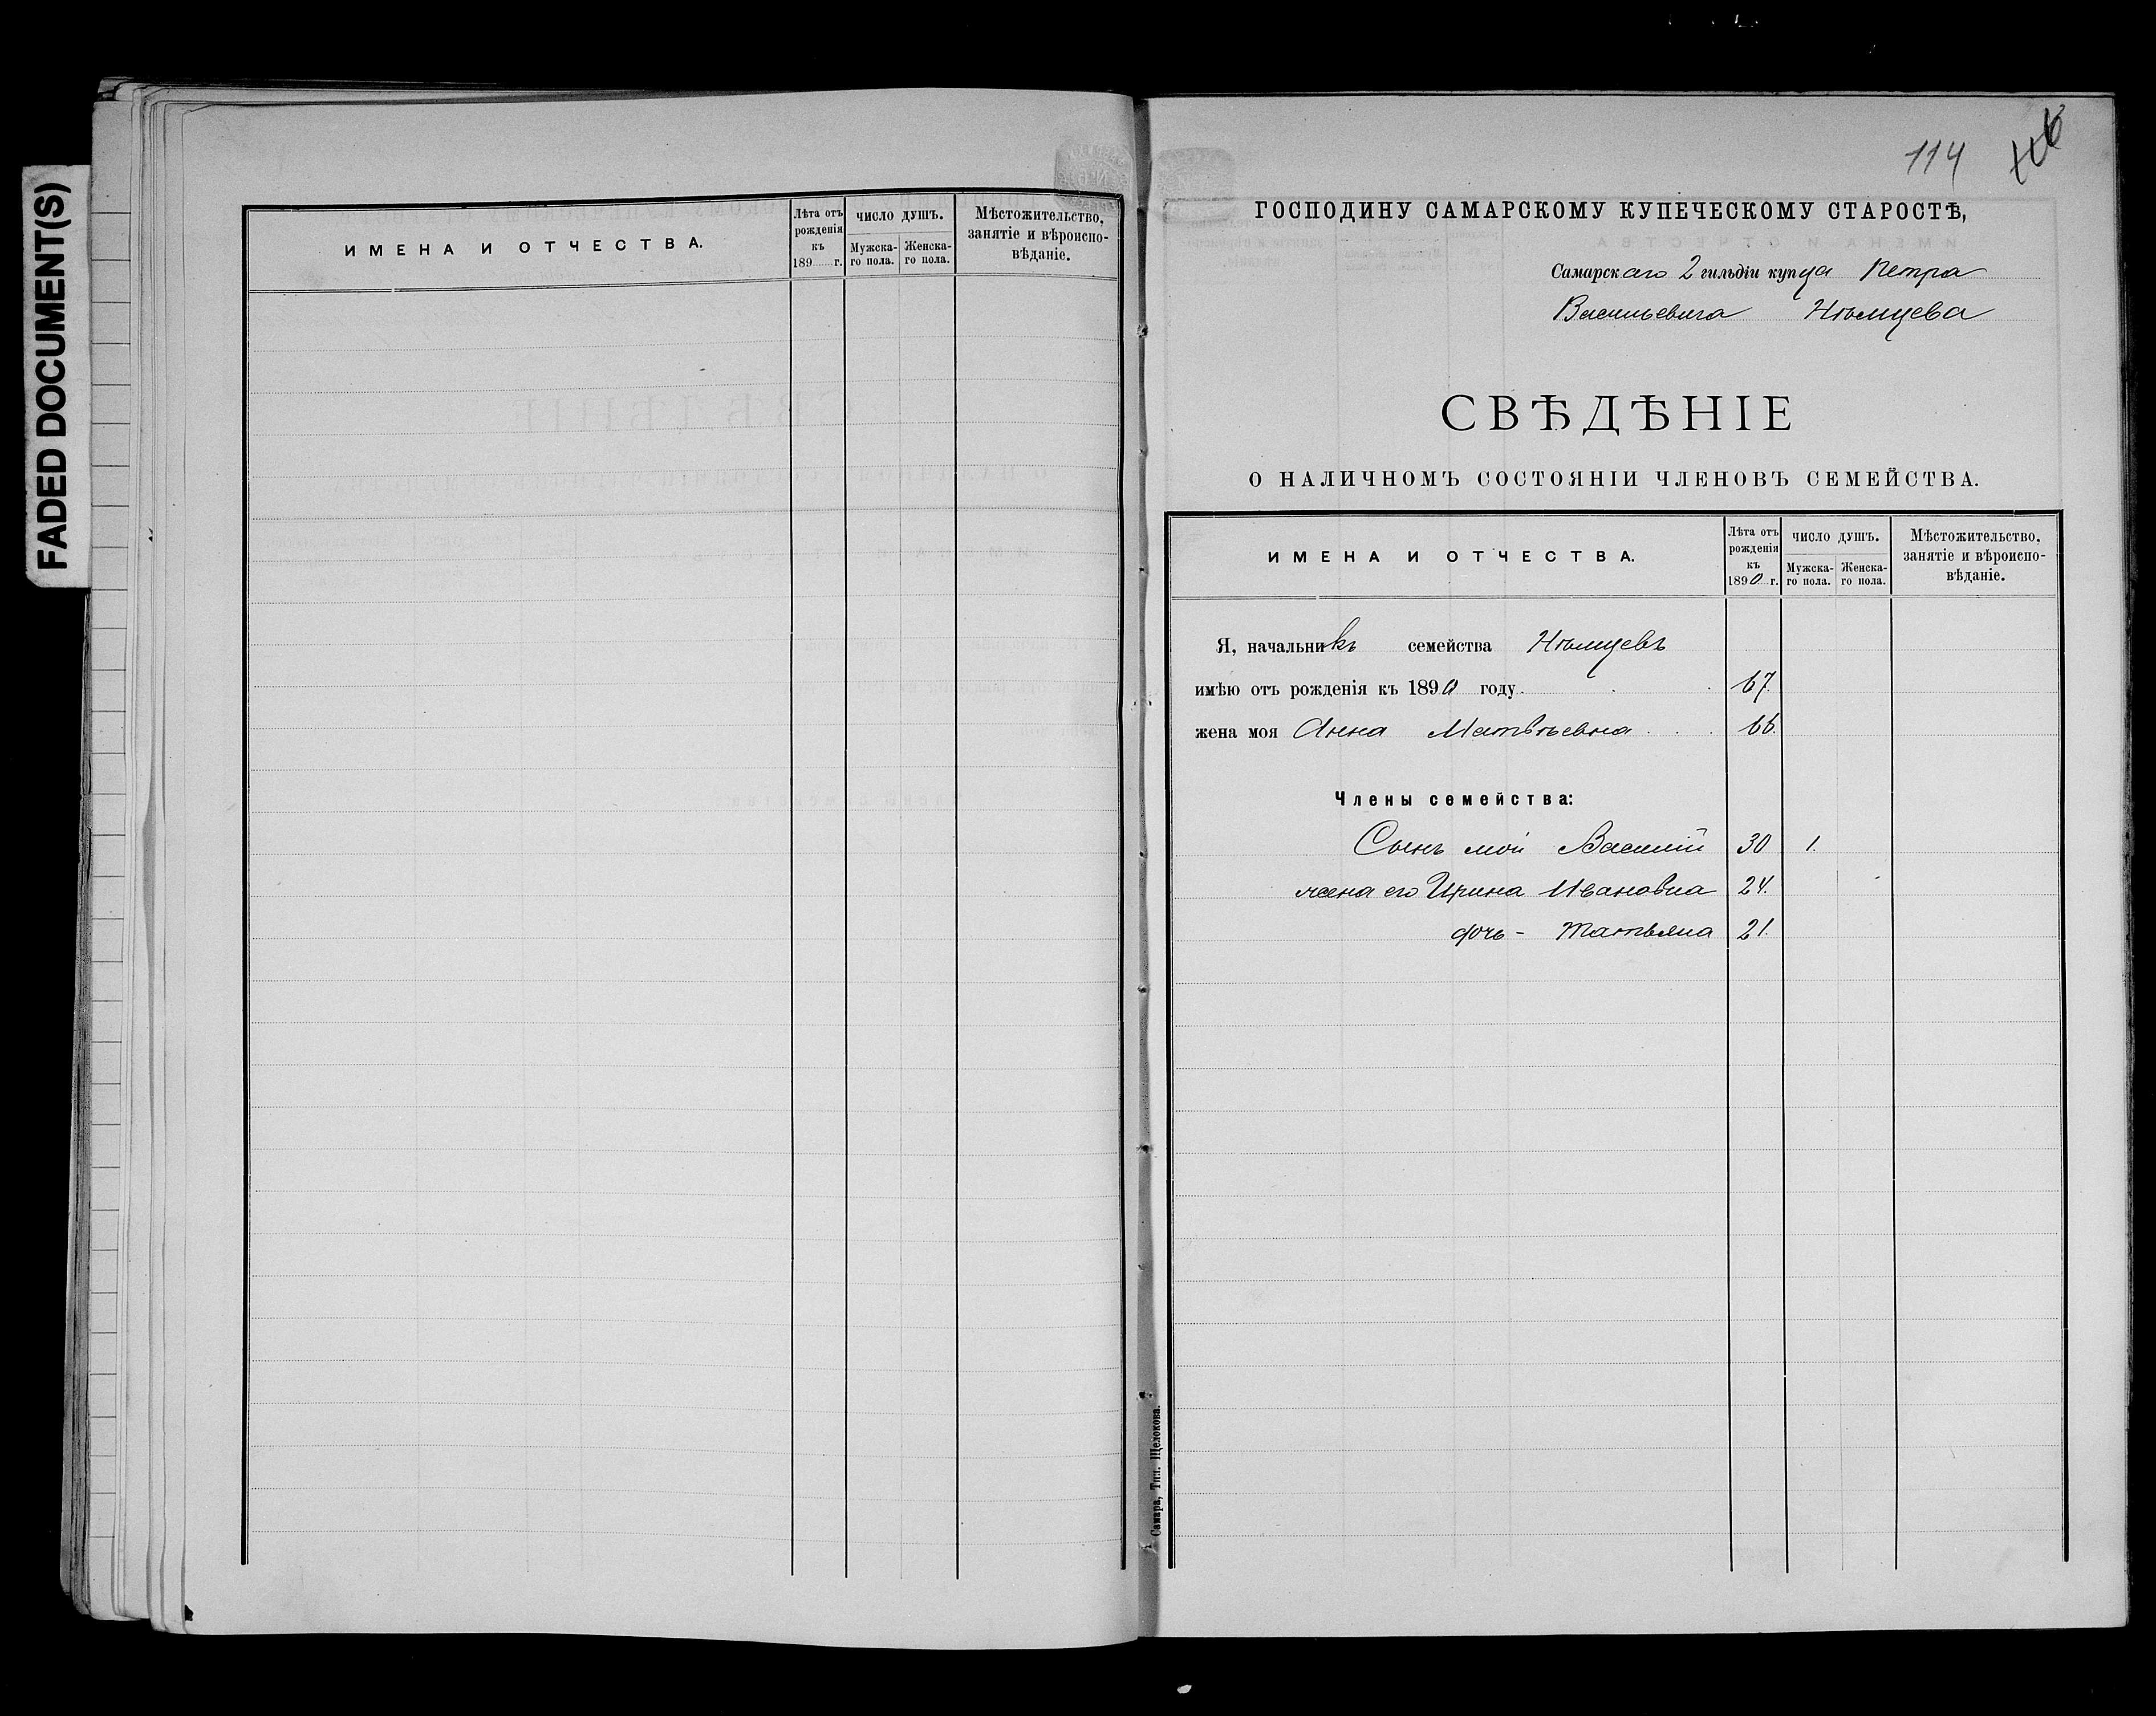 FADED DOCUMENT(S)
ИМЕНА И ОТЧЕСТВА.
Лѣта отъ рожденія къ 189 г.
ЧИСЛО ДУШЪ.
Мужска-го пола.
Женска-го пола.
Мѣстожительство, занятіе и вѣроиспо-вѣданіе.
114
ГОСПОДИНУ САМАРСКОМУ КУПЕЧЕСКОМУ СТАРОСТѢ,
Самарскаго 2 гильдіи купца Петра
Васильевича Нѣмцева
СВѢДѢНІЕ
О НАЛИЧНОМЪ СОСТОЯНІИ ЧЛЕНОВЪ СЕМЕЙСТВА.
ИМЕНА И ОТЧЕСТВА.
Лѣта отъ рожденія къ 1890 г.
ЧИСЛО ДУШЪ.
Мужска-го пола.
Женска-го пола.
Мѣстожительство, занятіе и вѣроиспо-вѣданіе.
Я, начальникъ семейства Нѣмцевъ
имѣю отъ рожденія къ 1890 году 67.
жена моя Анна Матвѣевна 66.
Члены семейства:
Сынъ мой Василій 30 1.
жена его Ирина Ивановна 24.
дочь - Татьяна 21.
Самара, Тип. Щелокова.